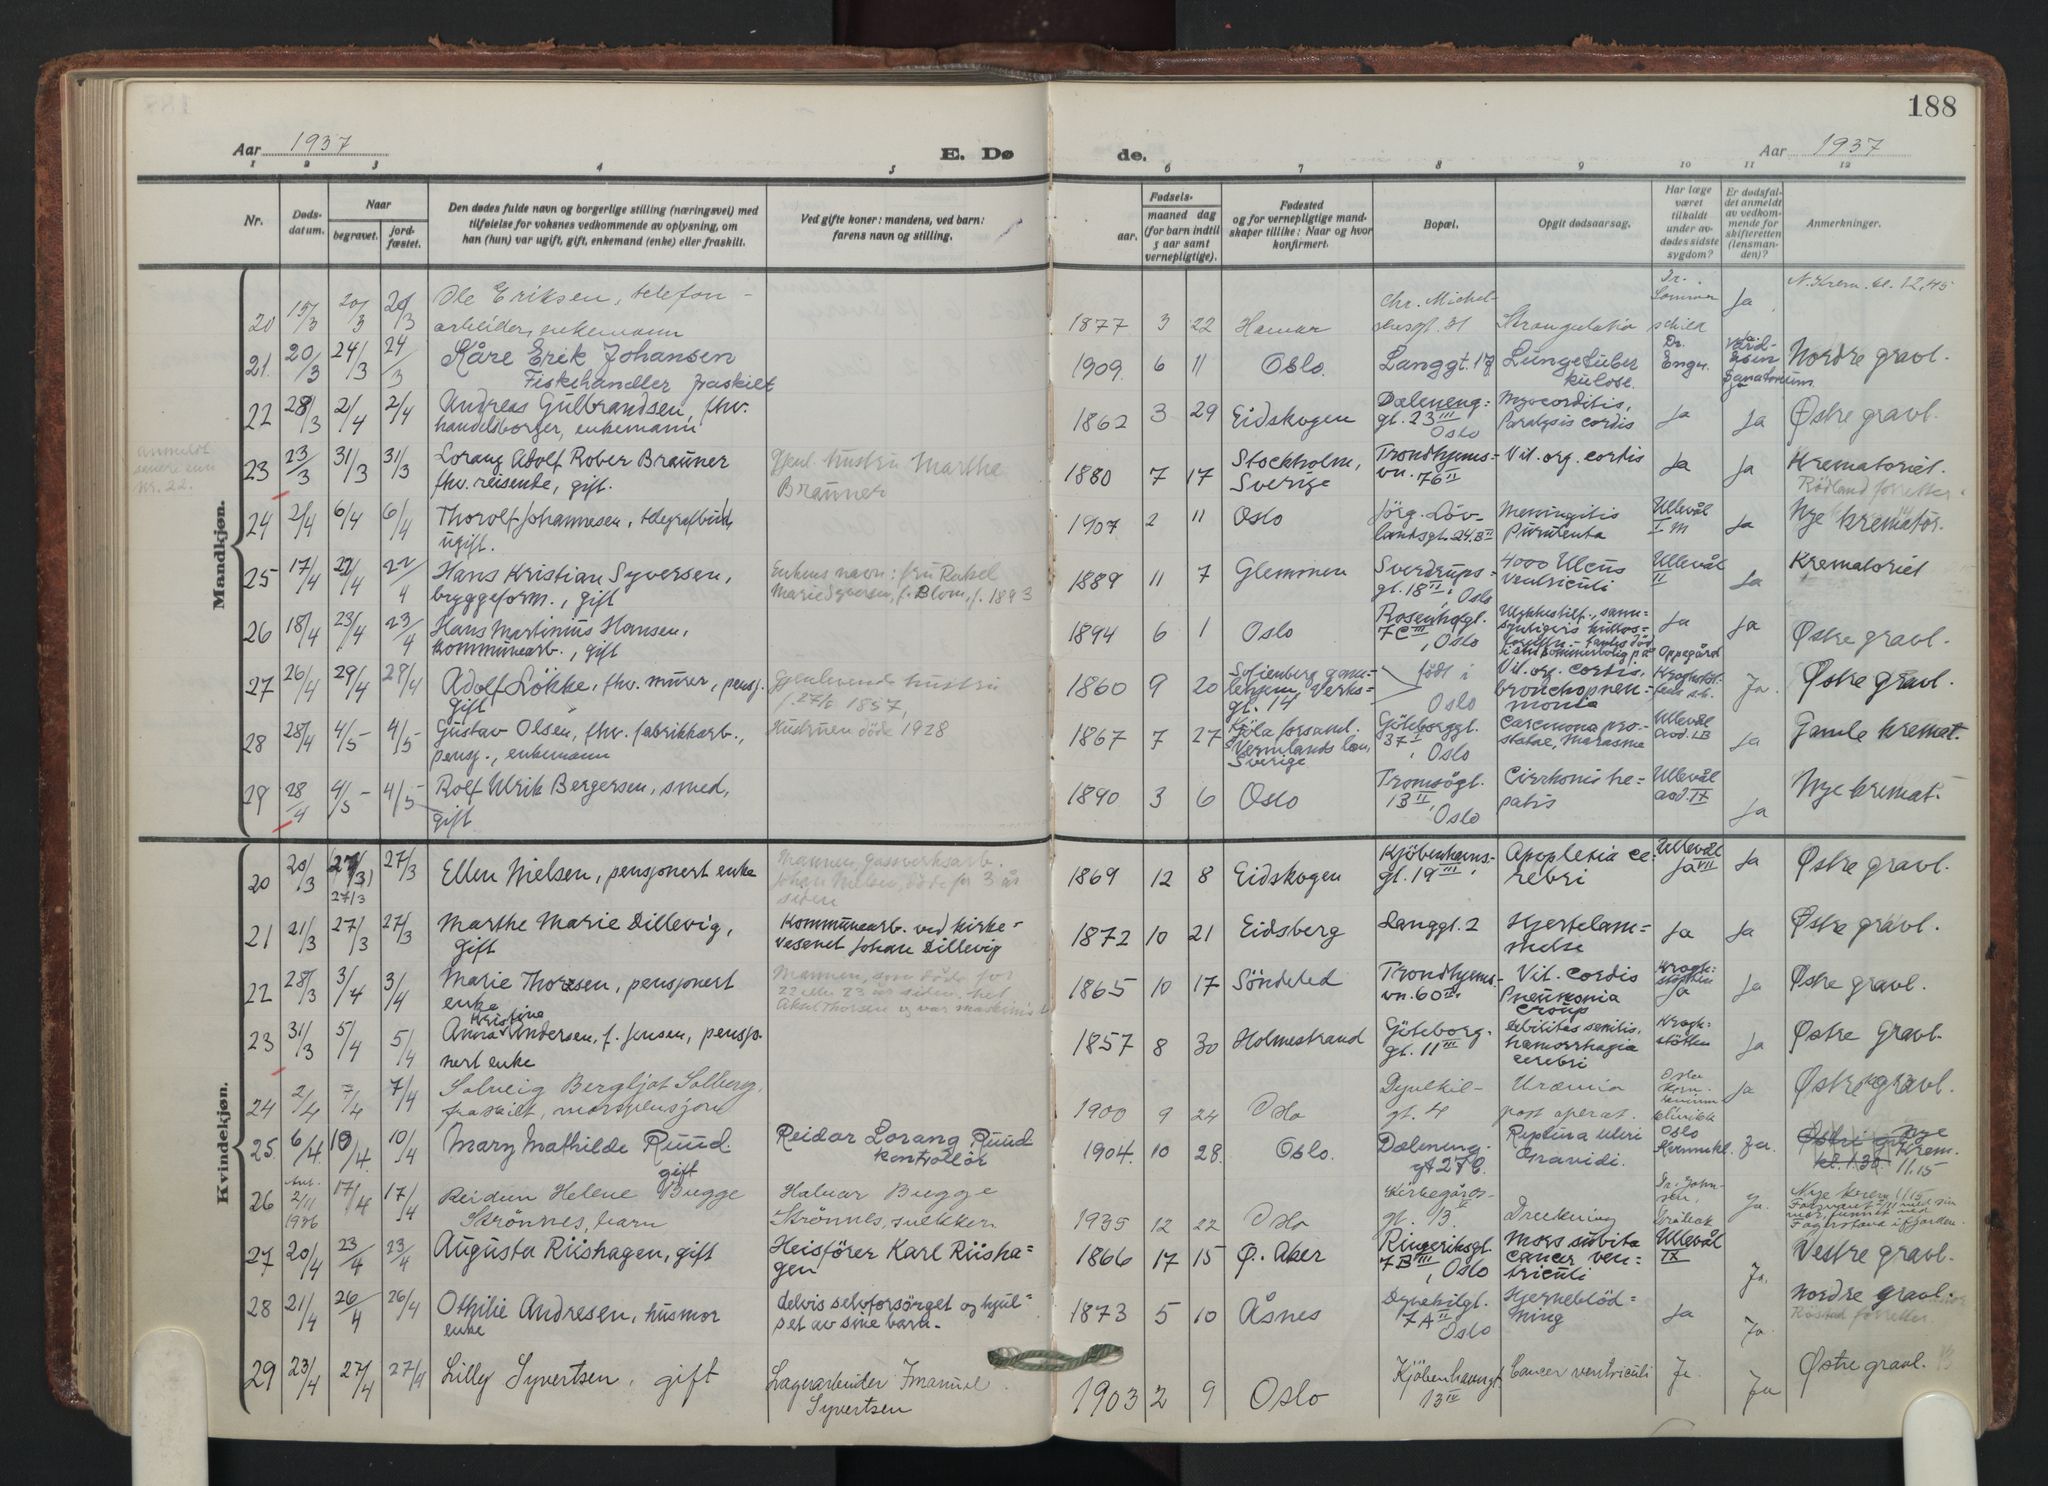 188
Aar 1937
E. Dø de.
Aar 1937
1 2 3 4 5 6 7 8 9 10 11 12
Nr.
Døds-
datum.
Naar
begravet.
jord-
fæstet.
Den dødes fulde navn og borgerlige stilling (næringsvei) med
tilføielse for voksnes vedkommende av oplysning, om
han (hun) var ugift, gift, enkemand (enke) eller fraskilt.
Ved gifte koner: mandens, ved barn:
farens navn og stilling.
Fødsels-
aar.
maaned dag
(for barn indtil
5 aar samt
vernepligtige).
Fødested
og for vernepligtige mand-
skaper tillike: Naar og hvor
konfirmert.
Bopæl.
Opgit dødsaarsag.
Har læge
været
tilkaldt
under av-
dødes sidste
sygdom?
Er dødsfal-
det anmeldt
av vedkom-
mende for
skifteretten
(lensman-
den)?
Anmerkninger.
Mandkjøn.
20 15/3 20/3 20/3 Ole Eriksen, telefon-
arbeider, enkemann
1877 3 22 Hamar
Chr. Michel-
sensgt. 31
Strangulatio
Dr.
Sommer
schild
Ja
N. Krem. kl. 12,45
21. 20/3 24/3 24/3 Kåre Erik Johansen
Fiskehandler fraskilt
1909. 6 11 Oslo.
Langgt. 17
Lungetuber
kulose.
Dr.
Enger.
Sanatorium
Nordre gravl.
22 28/3 2/4 2/4 Andreas Gulbrandsen, fhv.
handelsborger, enkemann
1862 3 29 Eidskogen
Dæleneng-
gt. 23 III
Oslo
Myocorditis,
Paralysis cordis
Ja
Ja
Østre gravl.
anmeldt
senere enn
nr. 22.
23 23/3 31/3 31/3 Lorang Adolf Rober Brauner
fhv. reisende, gift.
Gjenl. hustru Marthe
Brauner
1880 7 17 Stockholm,
Sverige
Trondhjems-
vn. 76 II
Vit. org. cordis
Ja
Ja
Krematoriet.
Rödland forretter.
24 2/4 6/4 6/4 Thorolf Johannesen, telegrafbud,
ugift.
1907 2 11 Oslo
Jörg. Löv-
landsgt. 24.B II
Meningitis
Purulenta
Ullevål
I M
Ja
Nye kremator.
25 17/4 22/4 22/4 Hans Kristian Syversen,
bryggeform., gift
Enkens navn: fru Rakel
Marie Syversen, f. Blom, f. 1893
1889 11 7 Glemmen
Sverdrups-
gt. 18 II, Oslo
Ulcus
ventriculi
Ullevål
II
Ja
Krematoriet
26 18/4 23/4 23/4 Hans Martinius Hansen,
kommunearb., gift
1894 6 1 Oslo
Rosenhofgt.
7 C III, Oslo
Ulykkestilf., sann-
synligvis kullos-
i sin sommerbolig på Oppegård
Ja
Ja
Østre gravl.
27 26/4 29/4 28/4 Adolf Lökke, fhv. murer, pensj.
gift
Gjenlevende hustru
1857,
1860 9 20 Sofienberg gam-
lehjem, Verks-
gt. 14
født i
Oslo
Vit. org. cordis,
bronchopneu-
monia
Ja.
Østre gravl.
28 28/4 4/5 4/5 Gustav Olsen, fhv. fabrikkarb.,
pensj., enkemann
Hustruen döde 1928
1867 7 27
Vermlands län,
Sverige
Göteborggt.
37 I, Oslo
Carcinoma pro-
statae, Marasme
Ullevål
avd. I B
Ja
Gamle kremat.
29 28/4 4/5 4/5 Rolf Ulrik Bergersen, smed,
gift
1890 3 6 Oslo
Tromsögt.
13 II,
Oslo
Cirrhonis he-
patis
Ullevål
avd. IX
Ja
Nye kremat.
Kvindekjøn.
20 20/3 27/3 27/3 Ellen Nielsen, pensjonert enke
Mannen, gassverksarb.
Johan Nielsen, döde for 3 år
siden
1869 12 8 Eidskogen
Kjöbenhavns-
gt. 19 III,
Apoplexia ce-
rebri
Ullevål
Ja VII
Ja
Østre gravl.
21 21/3 27/3 27/3 Marthe Marie Dillevig,
gift
Kommunearb. ved kirke-
vesenet Johan Dillevig
1872 10 21 Eidsberg
Langgt. 2
Hjertelam-
melse
Ja
Ja
Østre gravl.
22 28/3 3/4 3/4 Marie Thorsen, pensjonert
enke
Mannen, som döde for
22 eller 23 år siden, het
Aksel Thorsen og var maskinist
1865 10 17 Söndeled
Trondhjems-
vn. 60 II,
Vit. cordis
Pneumonia
croup
Kragh-
stötten
Ja
Ja
Østre gravl.
23 31/3 5/4 5/4 Anna Kristine Andersen, f. Jensen, pensjo-
nert enke
1857 8 30 Holmestrand
Göteborg-
gt. 11 III
debilitas senilis,
hamorrhagia
cerebri
Kragh-
stötten
Ja
Østre gravl.
24 2/4 7/4 7/4 Solveig Bergljot Solberg,
fraskilt, morspensjon
1900 9 24 Oslo
Dynekil-
gt. 4
Uræmia
post operat.
Oslo
kom-
munale
klinikk
Ja
Østre gravl.
25 6/4. 10/4. 10/4 Mary Mathilde Ruud
gift
Reidar Lorang Ruud
kontrollör
1904. 10 28. Oslo.
Dæleneng-
gt 27 C.
Ruptura uteri
Gravidi.
Oslo
Kommkl.
Ja.
Østre gr. Nye
Krem.
kl. 1.30. 11.15
26 Ant.
2/11
1936 17/4 17/4 Reidun Helene Bugge
Strønnes, barn
Halvar Bugge
Strønnes, snekker
1935 12 22 Oslo
Kirkegårds-
gt. 13
Drukning
Dr. John-
sen,
Ja.
Nye krem 11.15
Forsvant 2/11 med sin
mor, funnet ved
Fagerstrand i fjorden.
27 20/4 23/4 23/4 Augusta Riishagen, gift
Heisförer Karl Riisha-
gen
1866 17 15 Ø. Aker
Ringeriksgt.
7 B III, Oslo
Mors subita
cancer ven-
triculi
Ullevål
IX
Ja.
Vestre gravl.
28 21/4 26/4 26/4 Othilie Andresen, husmor
enke
delvis selvforsörget og hjul-
pet av sine barn.
1873 5 10 Åsnes
Dynekilgt.
7 A II
Oslo
Hjerneblöd-
ning
Ja
Ja.
Nordre gravl.
Röstad forretter
29 23/4 27/4 27/4 Lilly Syvertsen, gift
Lagerarbeider Imanuel
Syvertsen
1903 2 9 Oslo
Kjöbenhavngt.
13 IV
Cancer ventriculi
Ja.
Ja
Østre gravl. 13